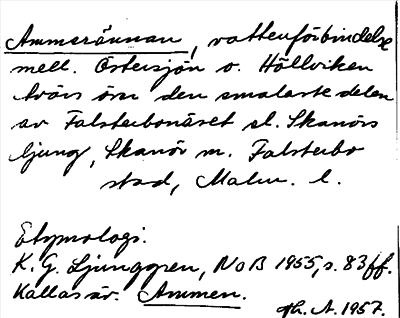 Ammerännan, vattenförbindelse
mell. Östersjön o. Höllviken
tvärs över den smalaste delen
av Falsterbonäset el. Skanörs
ljung, Skanör m. Falsterbo
stad, Malm. l.
Etymologi.
K. G. Ljunggren, NoB 1955, s. 83 ff.
Kallas äv. Ammen.
Th. A. 1957.